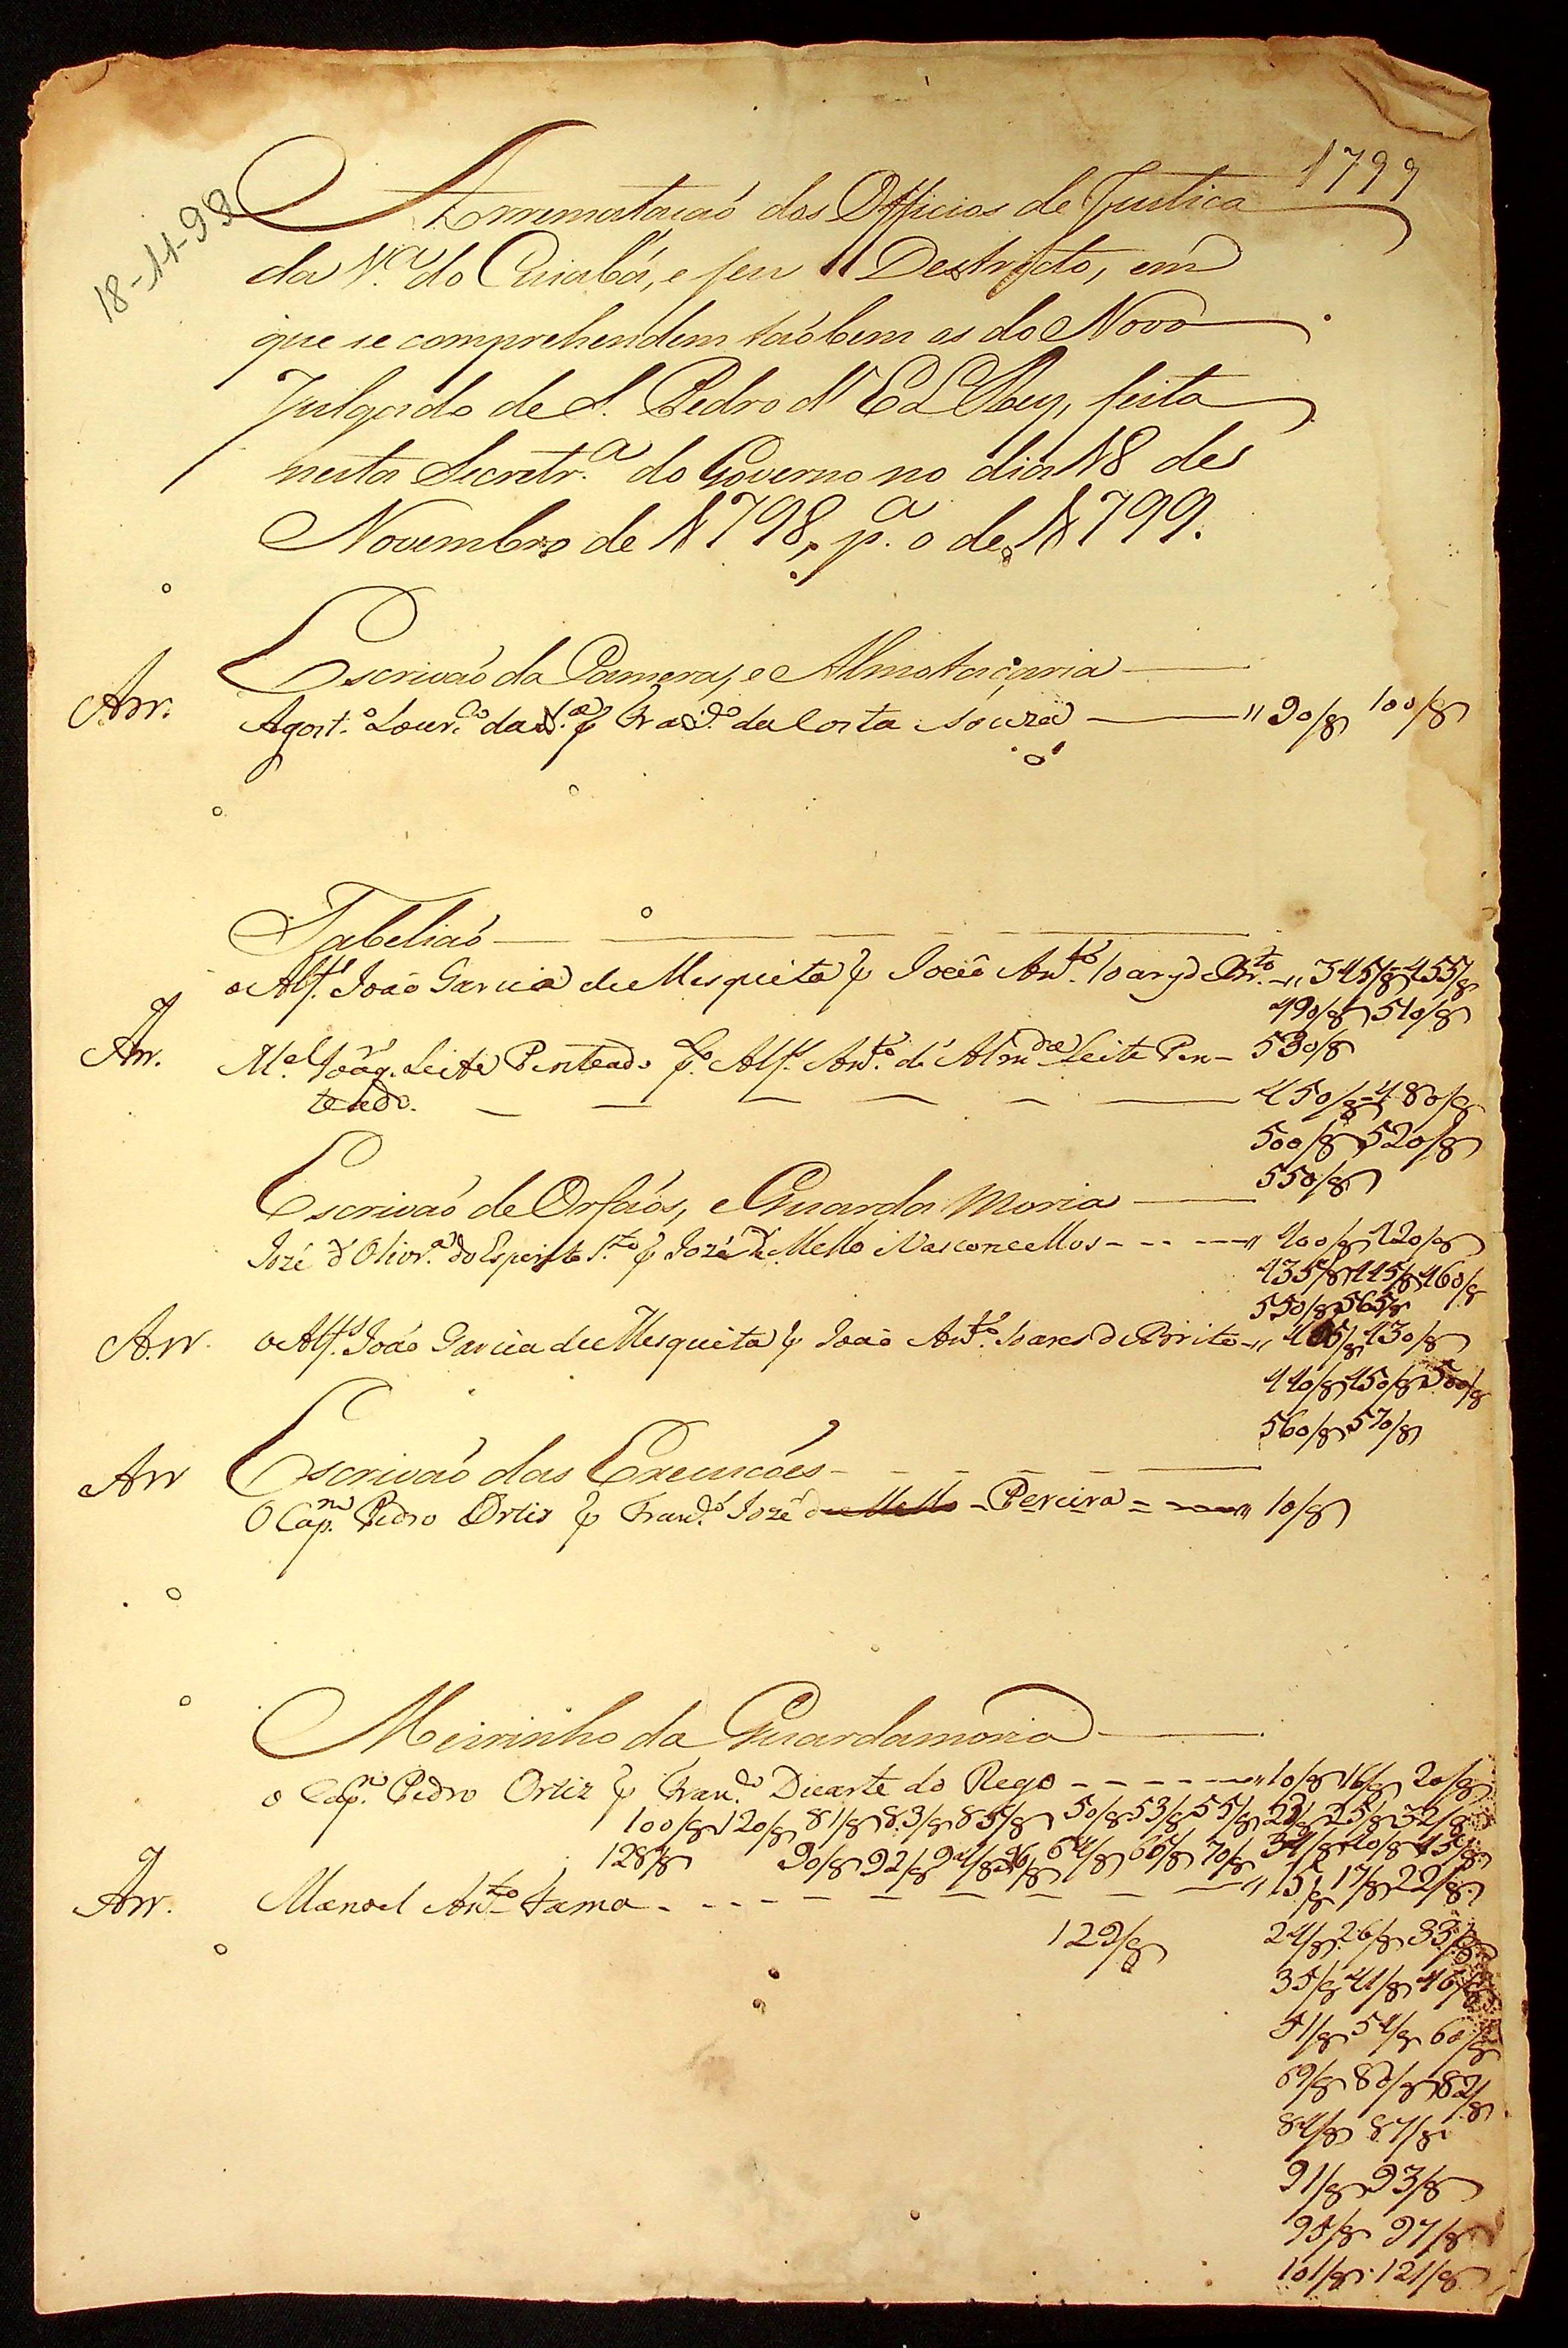 1799
18-11-98
Arrematacaó dos Officios de Justica
da V.ª do Cuiabá, e seu Destrycto, em
que se comprehendem taóbem os do Novo
Julgado de S. Pedro d'El Rey, feita
nesta Secretr.ª do Governo no dia 18 de
Novembro de 1798, p.ª o de 1799.
Escrivaó da Camera, e Almotaçaria
Arr. Agost.º Lour.ço da S.ª p Fran.do da Costa Souza — " 90/8 100/8
Tabeliaó
o Alf.s João Garcia de Mesquita p João Ant.º Soarz de Br.to — " 345/8 455/8
490/8 510/8
Arr. M.el Joaq. Leite Penteado p. Alf.s Ant.º de Alm.da Leite Pen- 530/8
teado. — 450/8 480/8
500/8 520/8
550/8
Escrivaó de Orfaós, e Guarda Moria
Jozé d Olivr.ª do Espirito S.to p Jozé de Mello Vasconcellos - - - " 400/8 420/8
435/8 445/8 460/8
550/8 565/8
Arr. o Alf.s João Garcia de Mesquita p João Ant.º Soares de Brito - " 405/8 430/8
440/8 450/8 500/8
560/8 570/8
Arr Escrivaó das Execucóes
O Cap.m Pedro Ortiz p Fran.co Jozé de Mello - Pereira = " 10/8
Meirinho da Guardamoria
o Cap.m Pedro Ortiz p Fran.co Duarte do Rego - - - - - " 10/8 16/8 20/8
100/8 120/8 81/8 83/8 85/8 50/8 53/8 55/8 23/8 25/8 32/8
128/8 90/8 92/8 94/8 96/8 64/8 66/8 70/8 34/8 40/8 45/8
Arr. Manoel Ant.to Fama - - - " 15/8 17/8 22/8
129/8 24/8 26/8 33/8
35/8 41/8 46/8
51/8 54/8 60/8
69/8 80/8 82/8
84/8 87/8
91/8 93/8
95/8 97/8
101/8 121/8